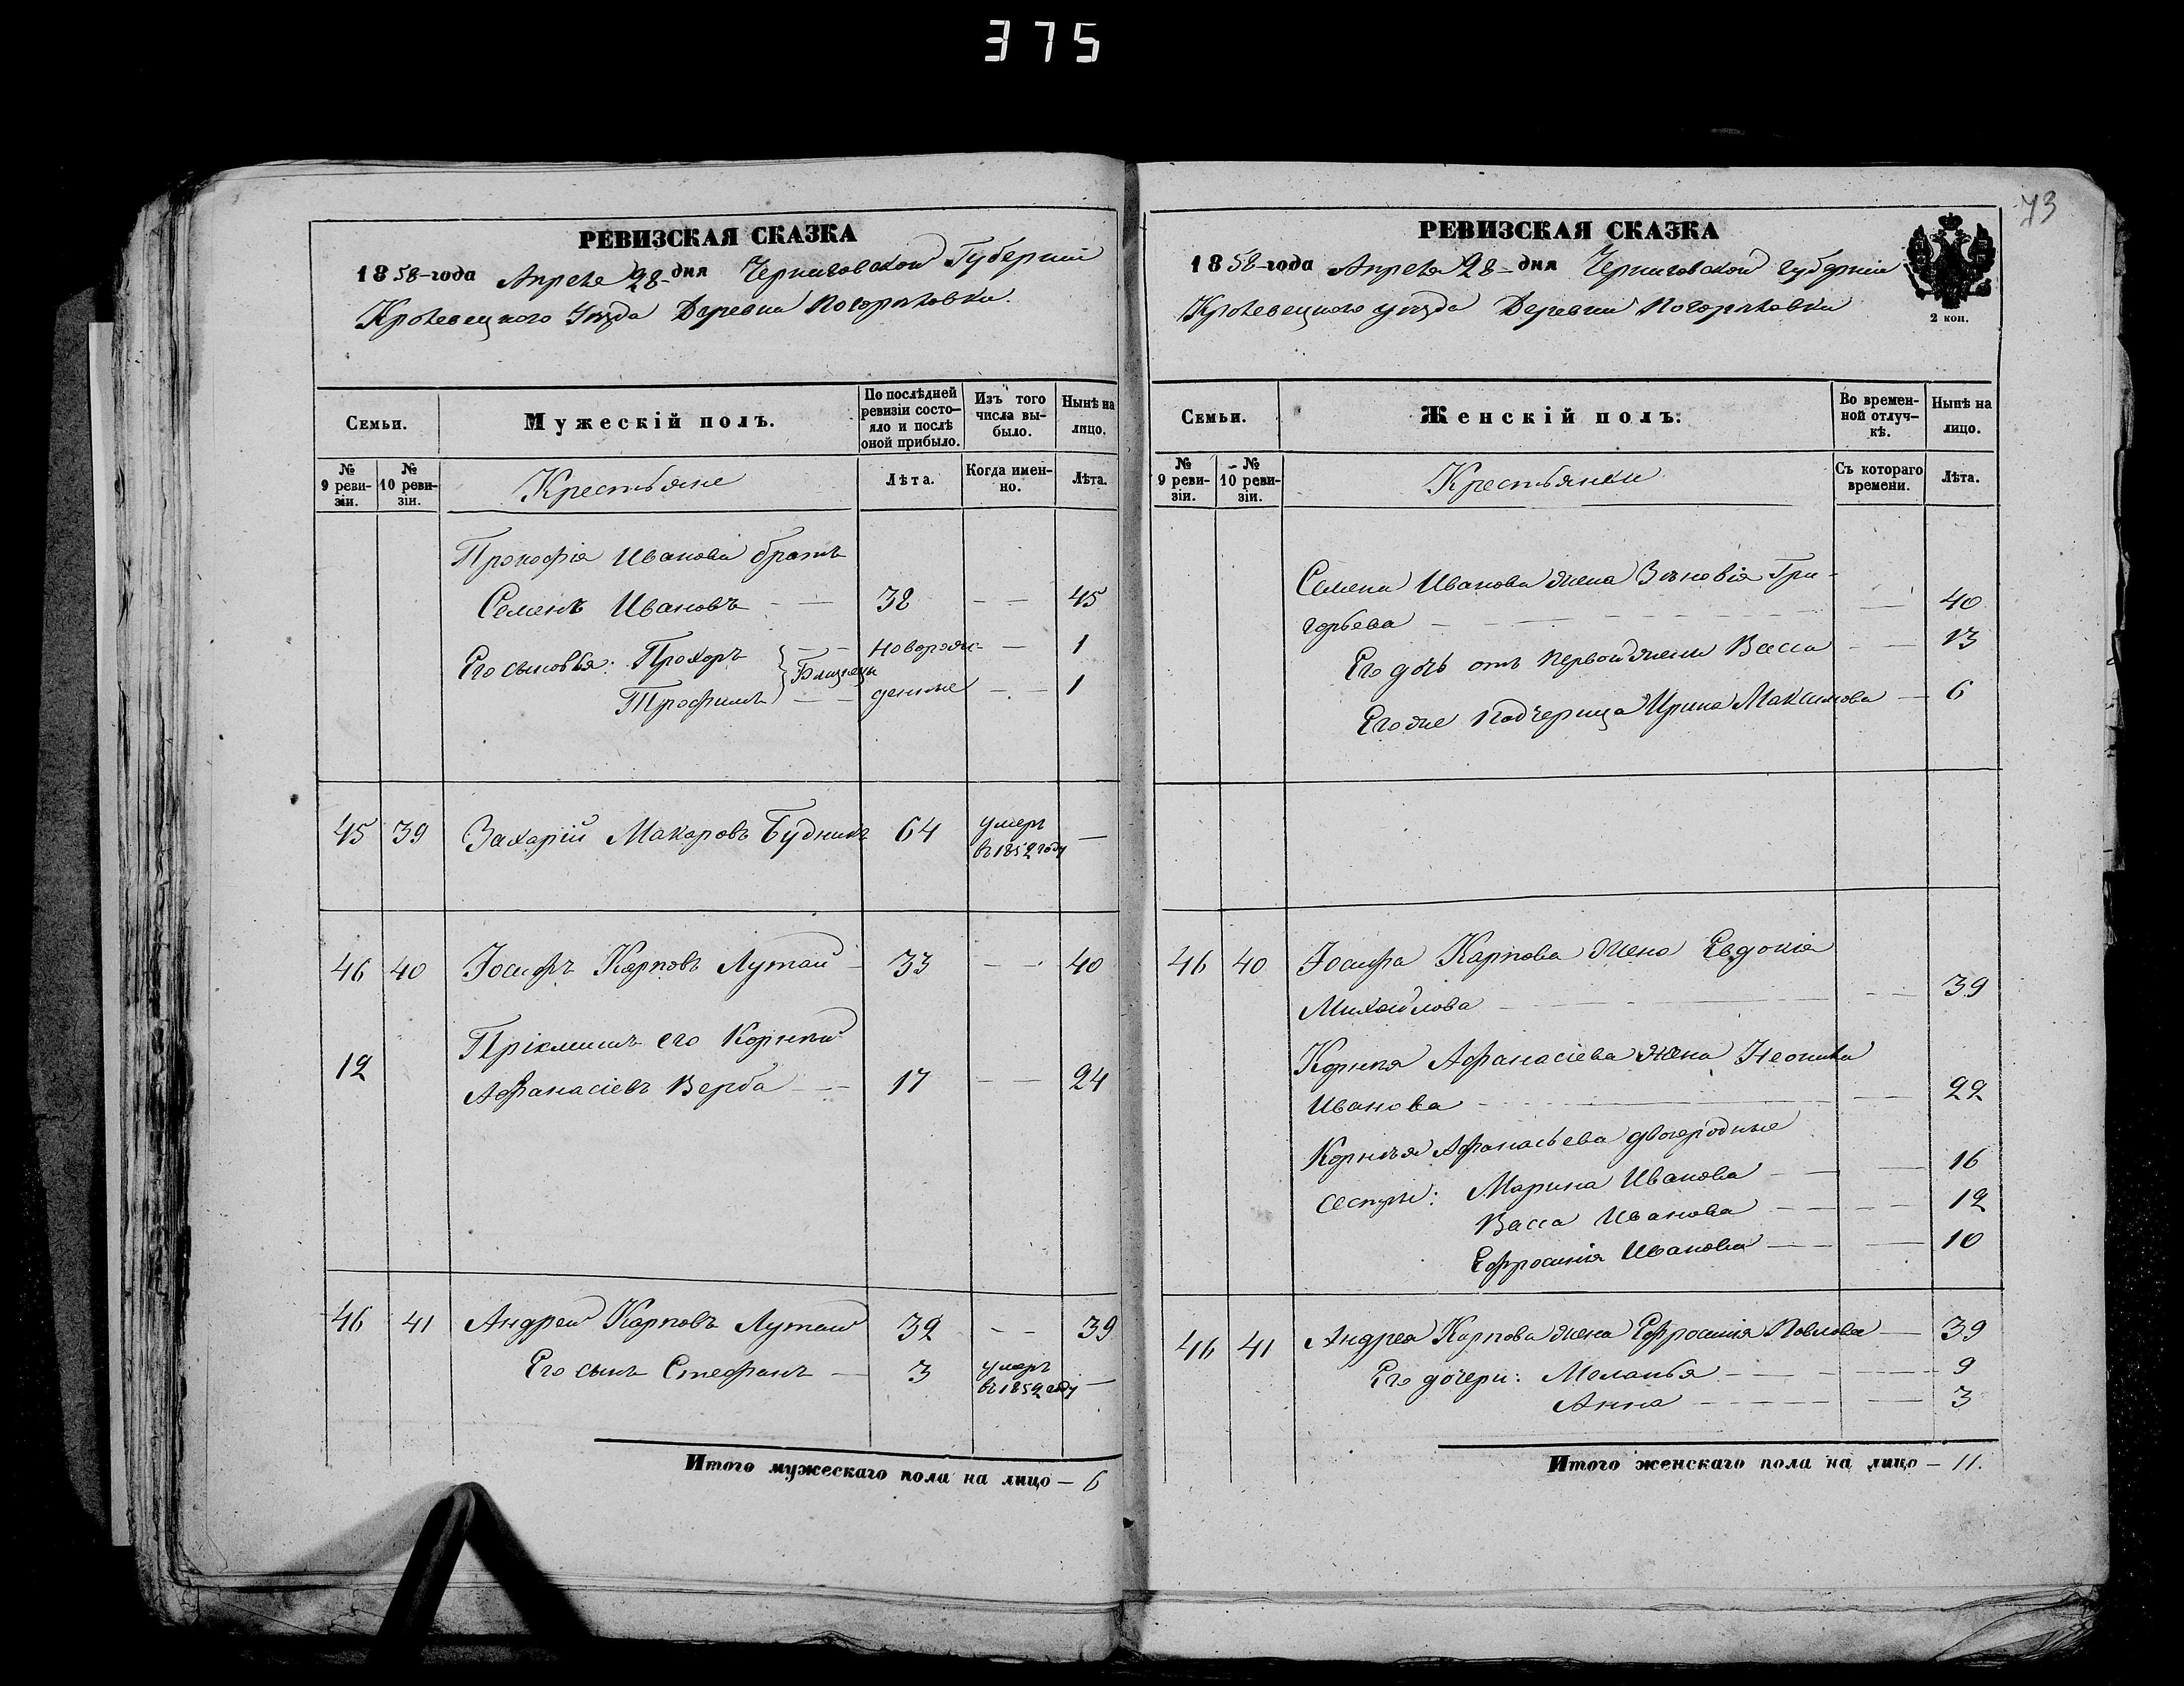 375
73
РЕВИЗСКАЯ СКАЗКА
1858-года Апреля 28-дня Черниговской Губерніи
Кролевецкого Уѣзда Деревни Погорѣловки.
Семьи.
Мужескій полъ.
По послѣдней ревизіи состо-яло и послѣ оной прибыло.
Изъ того числа вы-было.
Нынѣ на лицо.
№ 9 реви-зіи.
№ 10 реви-зіи.
Крестьяне
Лѣта.
Когда имен-но.
Лѣта.
Прокофія Иванова братъ
Семенъ Ивановъ — 38 — — 45
Его сыновья: Прохоръ } Близнецы — новорож- — 1
Трофимъ — денные — — 1
45 39 Захарій Макаровъ Будникъ 64 умеръ въ 1852 году —
46 40 Іосифъ Карповъ Лутай — 33 — — 40
12 Пріймишъ его Корнѣй
Афанасіевъ Верба — — 17 — — 24
46 41 Андрей Карповъ Лутай 32 — — 39
Его сынъ Стефанъ — 3 умеръ въ 1852 году —
Итого мужескаго пола на лицо — 6
РЕВИЗСКАЯ СКАЗКА
1858-года Апреля 28-дня Черниговской губерніи
Кролевецкого уѣзда Деревни Погорѣловки
2 коп.
Семьи.
Женскій полъ:
Во времен-ной отлуч-кѣ.
Нынѣ на лицо.
№ 9 реви-зіи.
№ 10 реви-зіи.
Крестьянки
Съ котораго времени.
Лѣта.
Семена Иванова жена Зѣновія Гри-
горьева — — 40
Его дочь отъ первой жены Васса — — 13
Его же падчерица Ирина Максимова — 6
46 40 Іосифа Карпова жена Евдокія
Михайлова — — 39
Корнѣя Афанасіева жена Неонила
Иванова — — 22
Корнѣя Афанасьева двоюродные
сестры: Марина Иванова — — 16
Васса Иванова — — 12
Ефросинія Иванова — — 10
46 41 Андрея Карпова жена Ефросинія Павлова — 39
Его дочери: Меланья — — 9
Анна — — 3
Итого женскаго пола на лицо — 11.